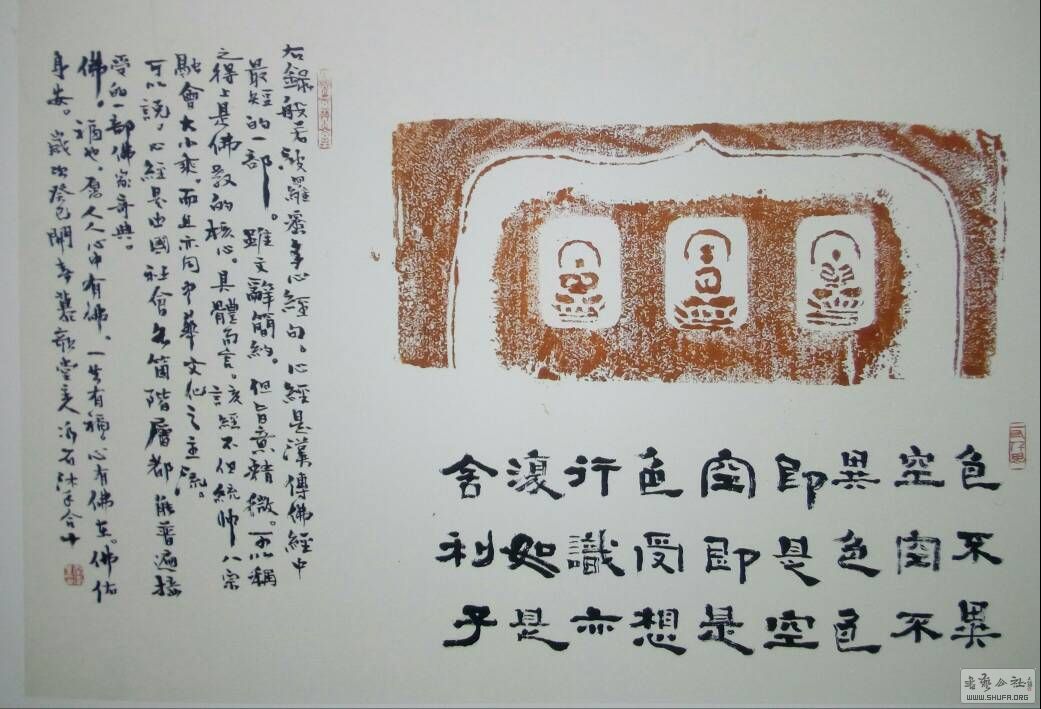 色不異
空空不
異色色
即是空
空即是
色受想
行識亦
復如是
舍利子
右錄般若波羅蜜多心經句。心經是漢傳佛經中
最短的一部。雖文辭簡約。但旨意精微。可以稱
之得上是佛教的核心。具體而言。該經不但統帥八宗
融會大小乘。而且亦同中華文化之主流。
可以說,心經是中國社會各箇階層都能普遍接
受的一部佛家奇典。
佛。福也。愿人人心中有佛。一生有福。心有佛在。佛佑
身安。歲次癸巳開春 堂主人 石沐手合十
書藝公社
WWW.SHUFA.ORG